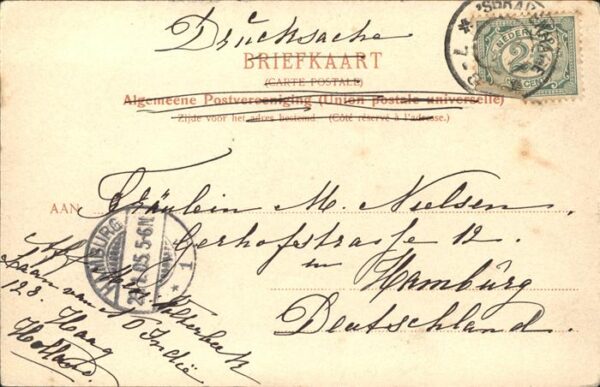 Drucksache
BRIEFKAART
(CARTE POSTALE)
Algemeene Postvereeniging (Union postale universelle)
Zijde voor het adres bestemd (Côté réservé à l'adresse.)
NEDERL
2½
CENT
AAN Fräulein M. Nielsen,
Gerhofstrasse 12.
in Hamburg
Deutschland.
HAMBURG
05. 5-6N
1
Laan van N. O. Indië
128. Haag
Holland.